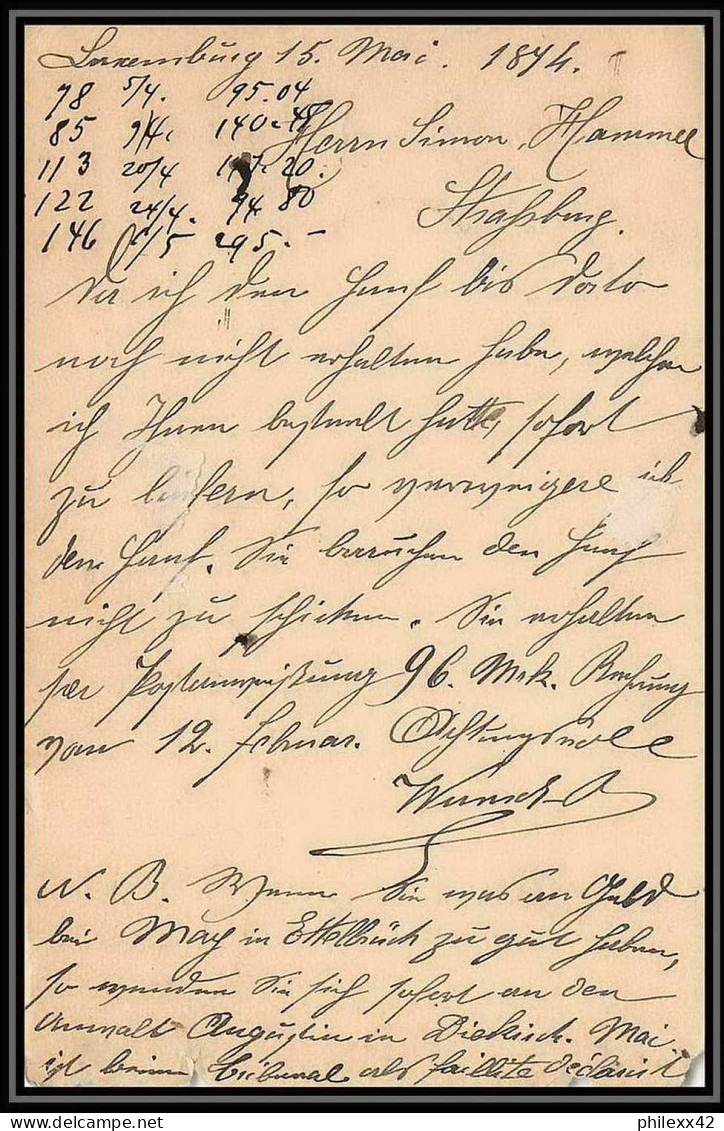 Luxemburg 15. Mai. 1874.
78 5/4. 95.04
85 9/4. 140.48
113 20/4 20.
122 24/4. 94 80
146 /5 295.–
Herrn Simon Hammel
Straßburg.
Da ich den Hanf bis dato
noch nicht erhalten habe, welchen
ich Ihnen bestellt hatte, sofort
zu liefern, so verweigere ich
den Hanf. Sie brauchen den Hanf
nicht zu schicken. Sie erhalten
per Postanweisung 96. Mrk. Rechnung
vom 12. Februar. Achtungsvoll
N. B. Wenn Sie was an Geld
bei May in Ettelbrück zu gut haben,
so wenden Sie sich sofort an den
Anwalt Augustin in Diekirch. Mai
ist beim Tribunal als faillite déclarirt
philexx42